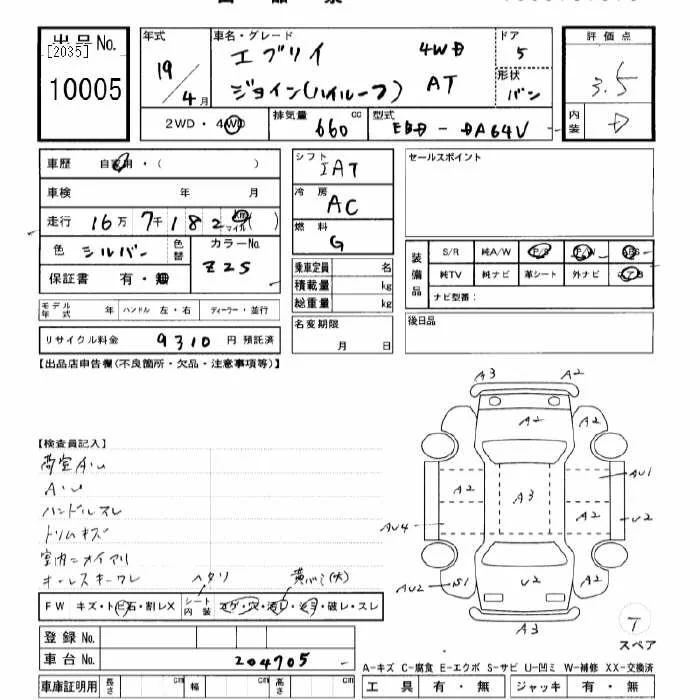 出品No.
[2035]
10005
年式
19/4月
車名・グレード
エブリイ 4WD
ジョイン(ハイルーフ) AT
ドア
5
形状
バン
評価点
3.5
内装
D
2WD・4WD
排気量
660 cc
型式
EBD-DA64V
車歴 自家用・( )
車検 年 月
走行 16万7千182 km マイル ( )
色 シルバー
色替
カラーNo.
Z2S
保証書 有・無
モデル年式 年 ハンドル 左・右 ディーラー・並行
リサイクル料金 9310 円 預託済
シフト
IAT
冷房
AC
燃料
G
乗車定員 名
積載量 kg
総重量 kg
名変期限
月 日
セールスポイント
装備品
S/R 純A/W P/S P/W
純TV 純ナビ 革シート 外ナビ
ナビ型番:
後日品
【出品店申告欄(不良箇所・欠品・注意事項等)】
【検査員記入】
A・U
ハンドルスレ
トリムキズ
室内ニオイアリ
キーレスキーワレ
ヘタリ
黄バミ(大)
FW キズ・トビ石・割レX
シート内装
コゲ・穴・汚レ・シミ・破レ・スレ
登録No.
車台No. 204705
車庫証明用 長さ cm 幅 cm 高さ cm
A3 A2
A2 A2
AU1
A2 A3 A2
AU4 U2
AU2 S1 U2 A2
A3
T
スペア
A-キズ C-腐食 E-エクボ S-サビ U-凹ミ W-補修 XX-交換済
工具 有・無 ジャッキ 有・無